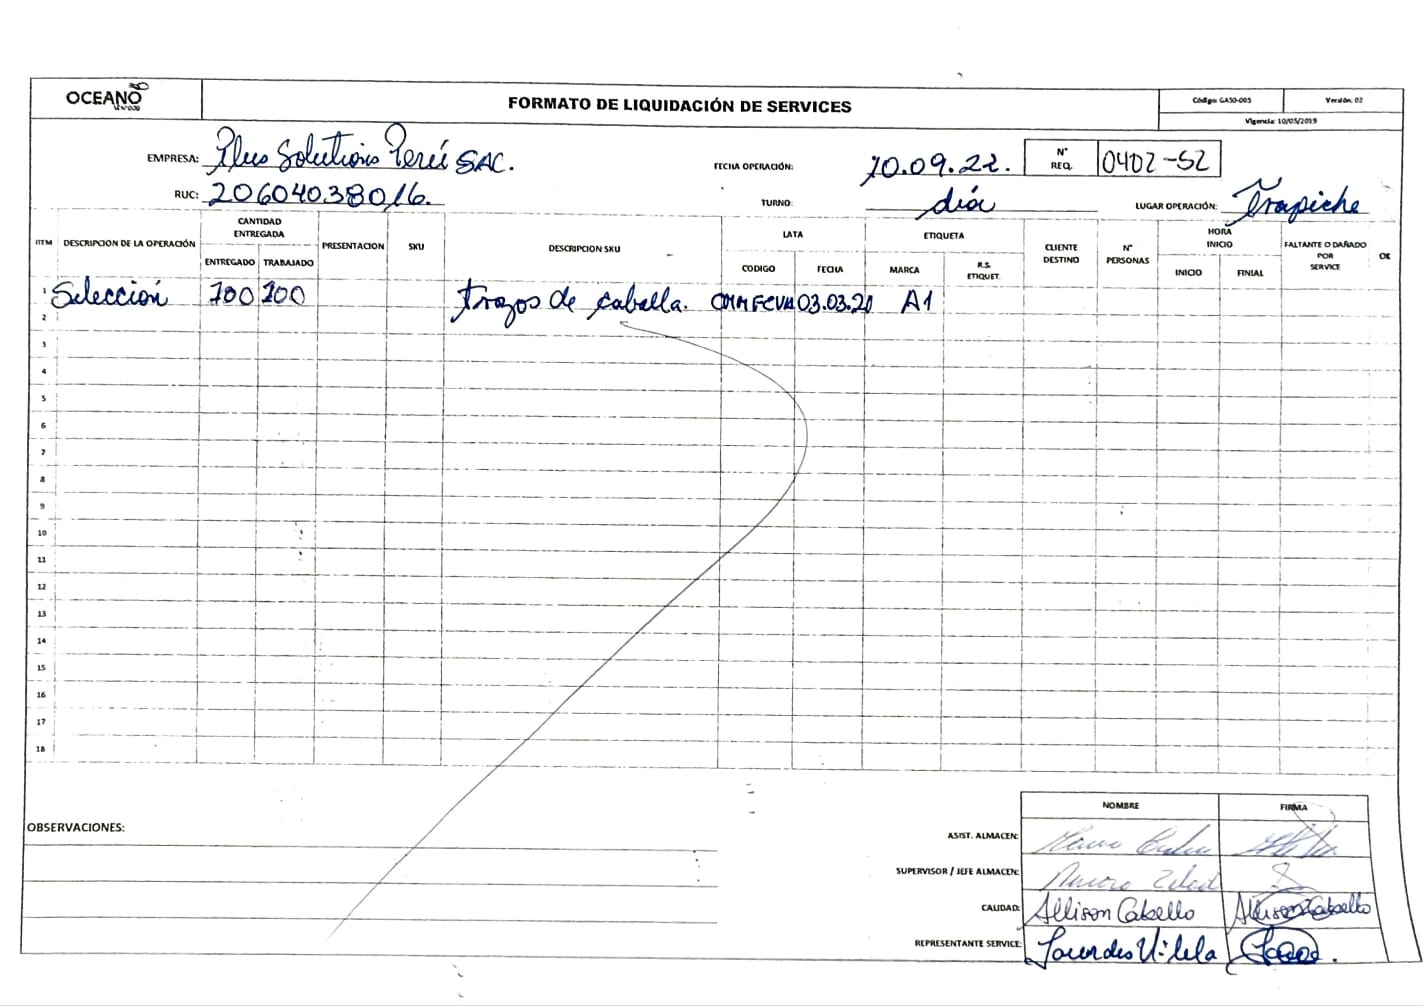 OCEANO
FORMATO DE LIQUIDACIÓN DE SERVICES
Código: GASO-005
Versión: 02
Vigencia: 10/05/2019
EMPRESA: Plus Solutions Perú SAC.
FECHA OPERACIÓN: 10.09.22.
N° REQ. 0402-S2
RUC: 20604038016.
TURNO: día
LUGAR OPERACIÓN: Trapiche
ITEM DESCRIPCION DE LA OPERACIÓN CANTIDAD ENTREGADA PRESENTACION SKU DESCRIPCION SKU LATA ETIQUETA CLIENTE DESTINO N° PERSONAS HORA INICIO FALTANTE O DAÑADO POR SERVICE OK
ENTREGADO TRABAJADO CODIGO FECHA MARCA R.S. ETIQUET. INICIO FINIAL
1 Selección 100 100 trozos de caballa. 03.03.20 A1
2
3
4
5
6
7
8
9
10
11
12
13
14
15
16
17
18
OBSERVACIONES:
NOMBRE FIRMA
ASIST. ALMACEN:
SUPERVISOR / JEFE ALMACEN:
CALIDAD: Allison Cabello Allison Cabello
REPRESENTANTE SERVICE: Lourdes Vilela